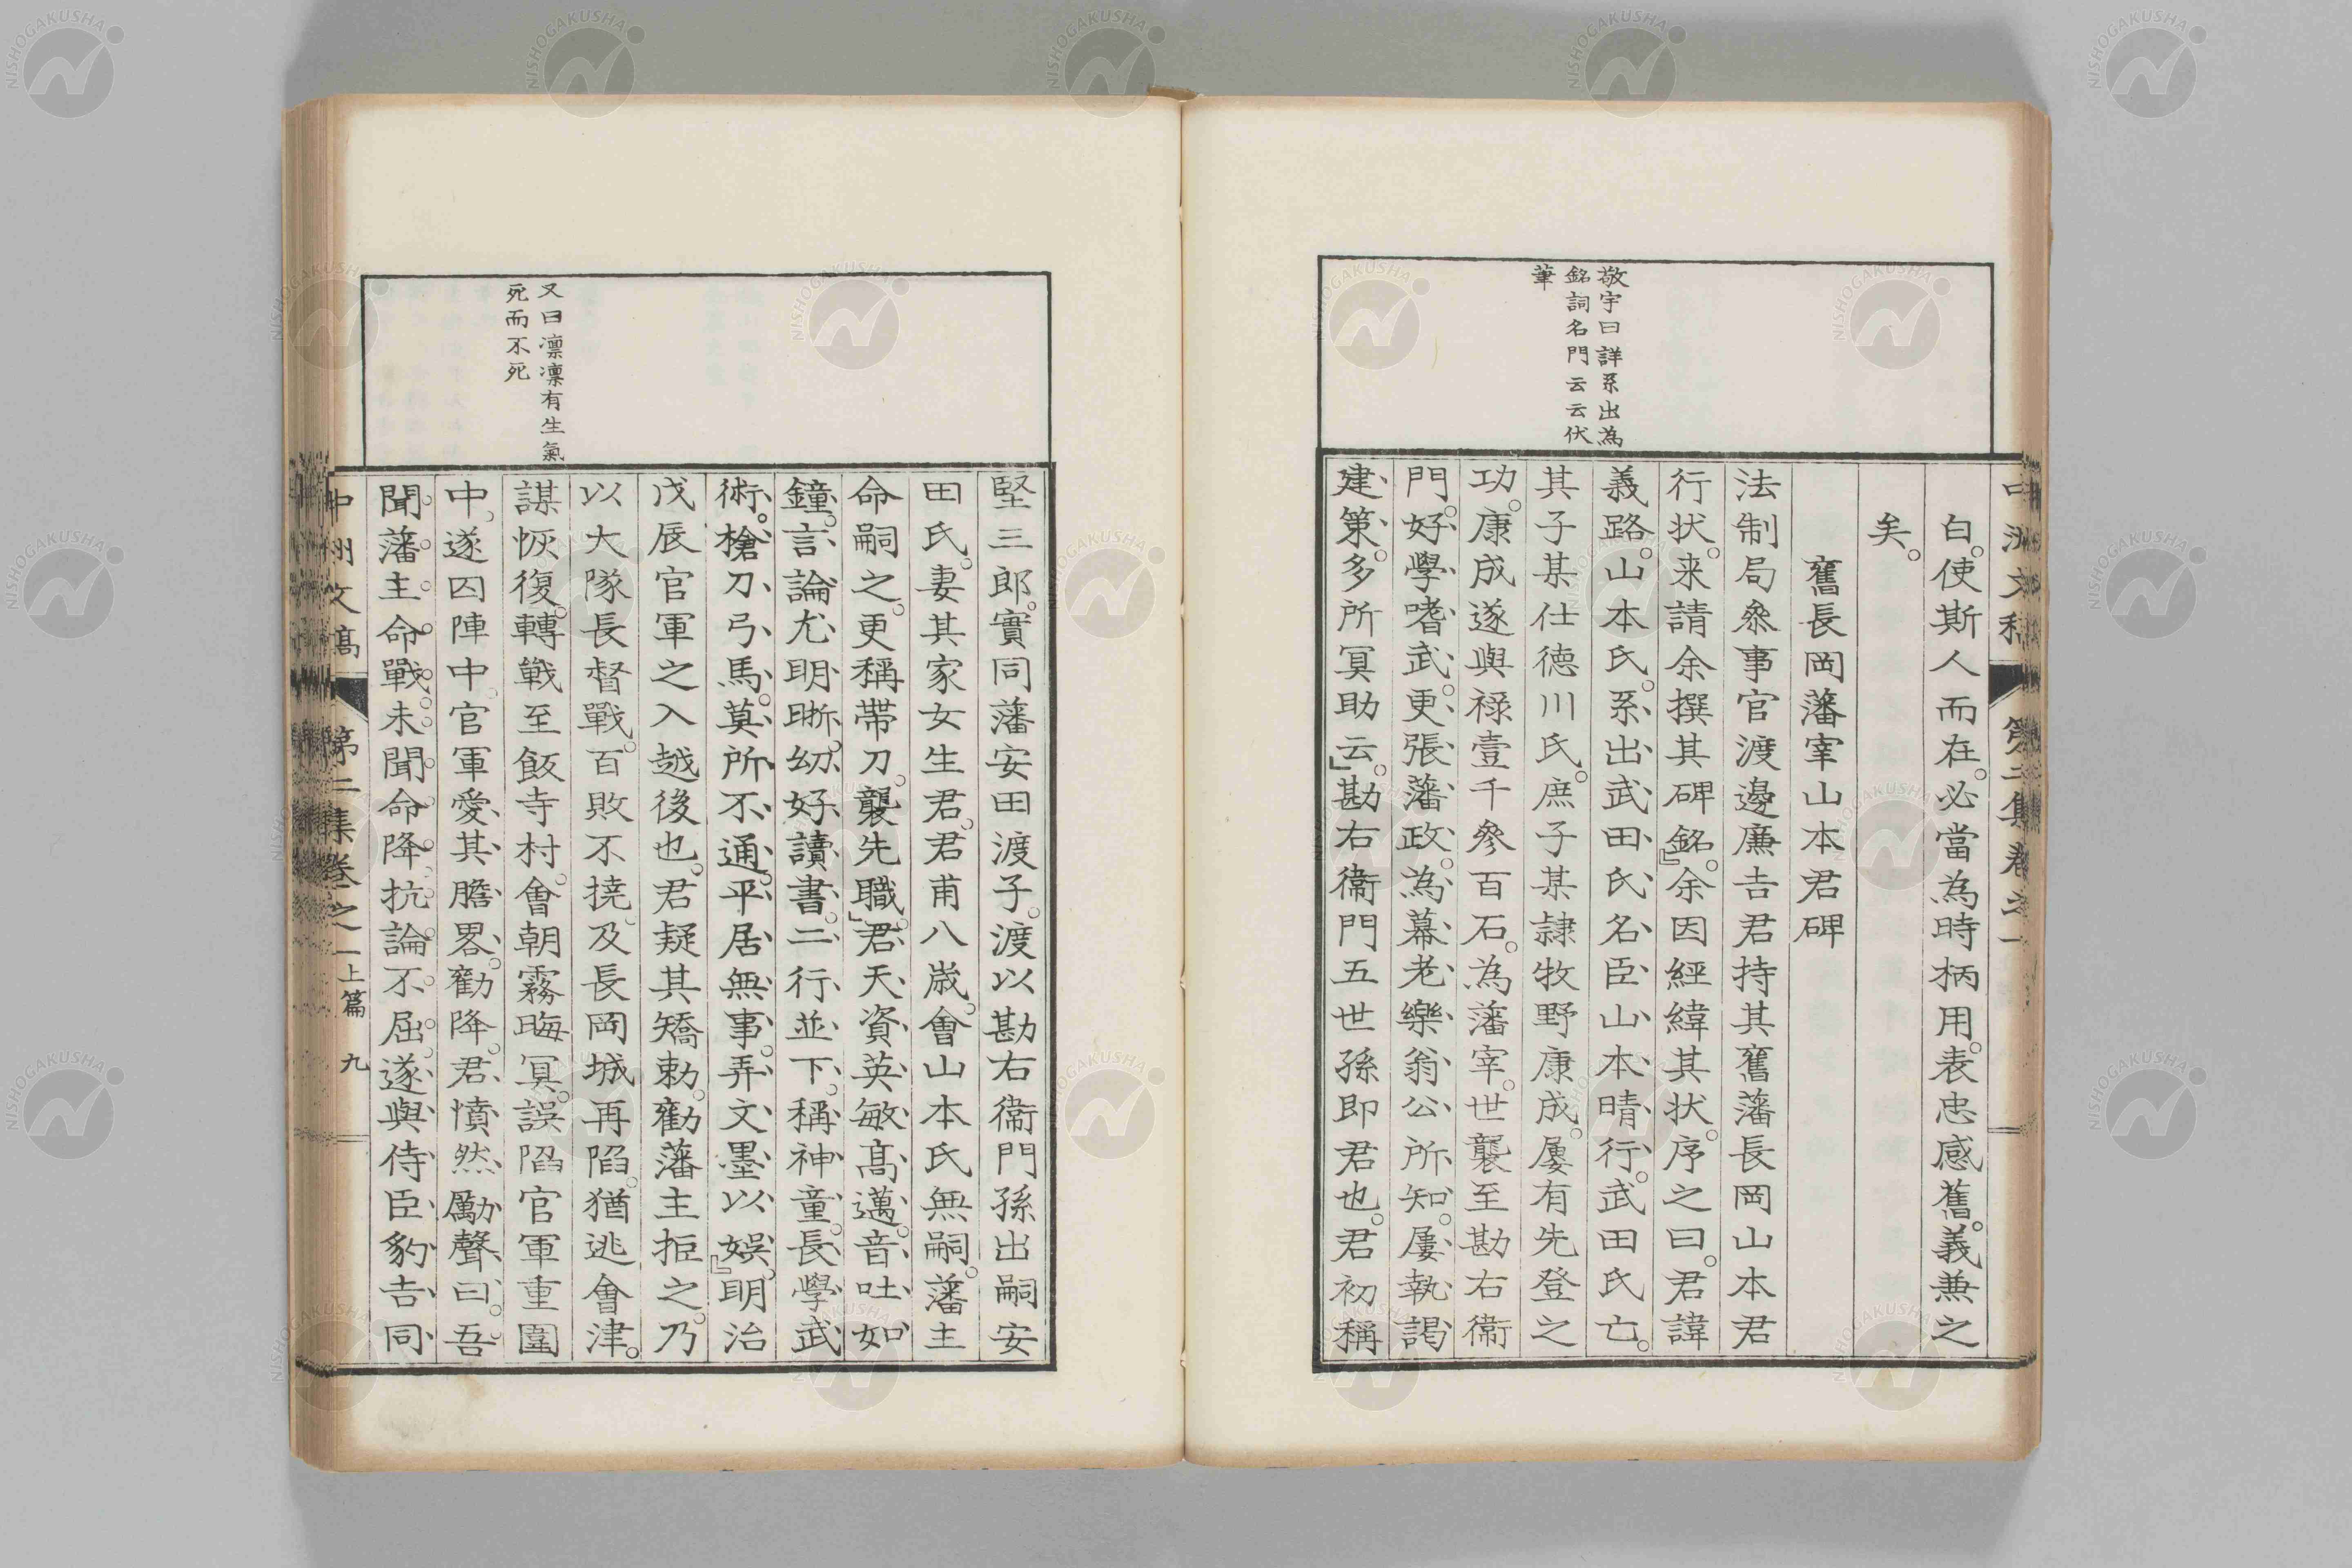 敬宇曰詳系出為
銘詞名門云云伏
筆
白。使斯人而在。必當為時柄用。表忠感舊。義兼之
矣。
舊長岡藩宰山本君碑
法制局叅事官渡邊廉吉君持其舊藩長岡山本君
行状。来請余撰其碑銘。』余因經緯其状。序之曰。君諱
義路。山本氏。系出武田氏名臣山本晴行。武田氏亡。
其子某仕德川氏。庶子某隷牧野康成。屢有先登之
功。康成遂與祿壹千參百石。為藩宰。世襲至勘右衞
門。好學嗜武。更張藩政。為幕老樂翁公所知。屢執謁
建策。多所冥助云。』勘右衞門五世孫即君也。君初稱
又曰凛凛有生氣
死而不死
堅三郎。實同藩安田渡子。渡以勘右衞門孫出嗣安
田氏。妻其家女生君。君甫八歲。會山本氏無嗣。藩主
命嗣之。更稱帶刀。襲先職。』君天資英敏高邁。音吐如
鐘。言論尤明晰。幼好讀書。二行並下。稱神童。長學武
術。槍刀弓馬。莫所不通。平居無事。弄文墨以娛。』明治
戊辰官軍之入越後也。君疑其矯勅。勸藩主拒之。乃
以大隊長督戰。百敗不撓。及長岡城再陷。猶逃會津。
謀恢復。轉戰至飯寺村。會朝霧晦冥。誤陷官軍重圍
中。遂囚陣中。官軍愛其膽畧。勸降。君憤然勵聲曰。吾
聞藩主命戰。未聞命降。抗論不屈。遂與侍臣豹吉同
中洲文稿
第二集卷之一
上篇
九